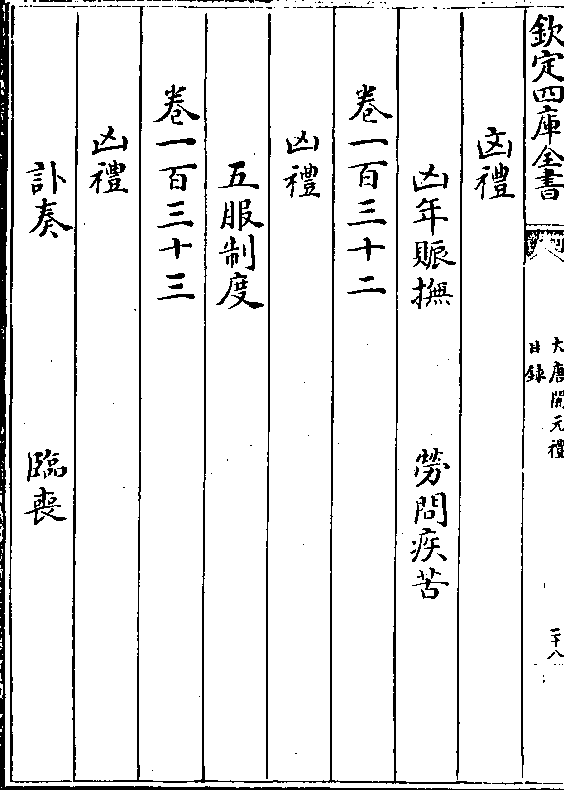 欽定四庫全書
大唐開元禮
目錄
二十八
凶禮
凶年賑撫 勞問疾苦
卷一百三十二
凶禮
五服制度
卷一百三十三
凶禮
訃奏 臨喪